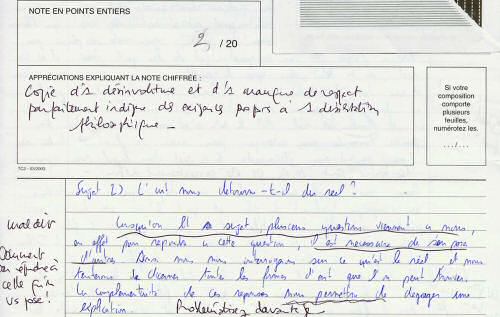 NOTE EN POINTS ENTIERS
2 / 20
APPRÉCIATIONS EXPLIQUANT LA NOTE CHIFFRÉE :
Copie d'1 désinvolture et d'1 manque de respect
parfaitement indigne des exigences propres à 1 dissertation
philosophique
Si votre
composition
comporte
plusieurs
feuilles,
numérotez-les.
.../...
Sujet 2) L'art nous détourne-t-il du réel ?
mal dit
Lorsqu'on lit ce sujet plusieurs questions viennent a nous,
en effet pour repondre a cette question, il est necessaire de s'en poser
d'autres. Nous nous interrogeons sur ce qu'est le réel et nous
tenterons de toute les formes d'art que l'on peut trouver.
La complémentarité de ces reponses nous permettra de degager une
explication.
comment
répondre à
cette
vs pose !
Problématisez davantage